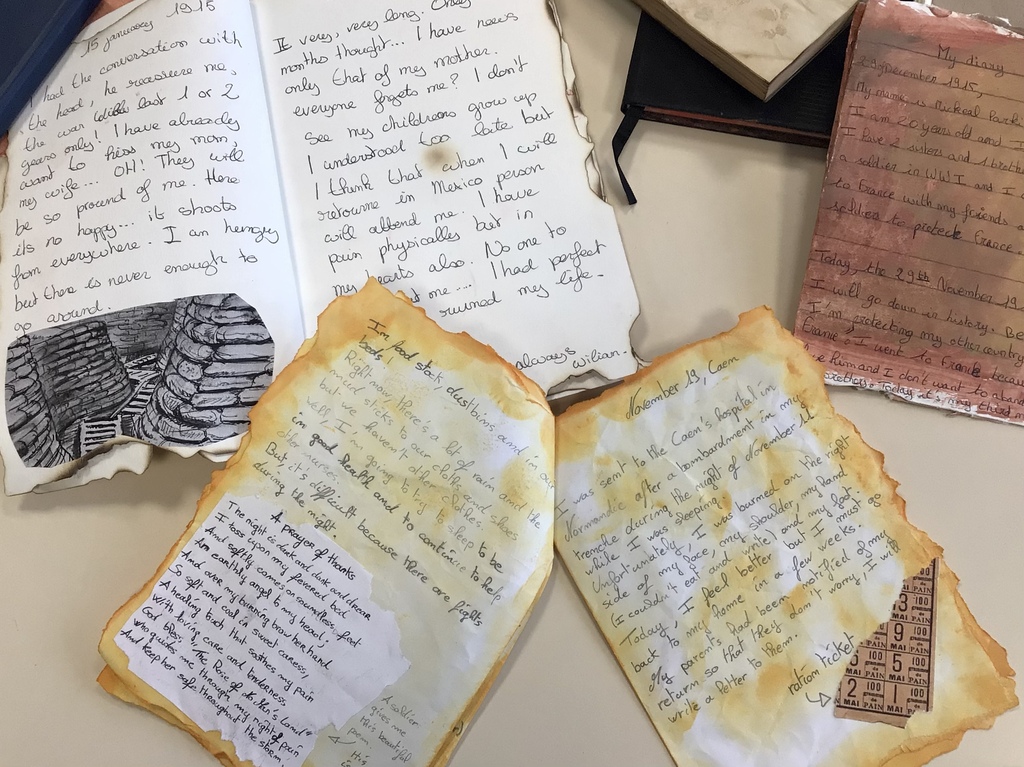 15 january 1915
I had the conversation with
the head, he reassure me,
the war will last 1 or 2
years only! I have already
want to kiss my mom,
my wife... OH! They will
be so pround of me. Here
its no happy... it shoots
from everywhere. I am hungry
but there is never enough to
go around.
It very, very long. Only
months thought... I have news
only that of my mother.
everyone forgets me? I don't
see my childrens grow up
I understood too late but
I think that when I will
retourne in Mexico person
will attend me. I have
pain physically but in
my hearts also. No one to
me.... I had perfect
ruined my life.
always wilian.
My diary
29 December 1915,
My name is Mickeal Park
I am 20 years old and I
I have 2 sisters and 1 broth
a soldier in WWI and I
to France with my friends a
soldier to protect France.
Today, the 29th November 19
I will go down in history. Be
I'm protecting my other country
France. I went to France becau
human and I don't want to aban
Today it's my third m
I'm food stock dustbins and in our
beds!
Right now, there's a lot of rain and the
mud sticks to our clothes and shoes
but we haven't other clothes.
Well, I'm going to try to sleep to be
in good health and to continue to help
other nurses.
But it's difficult because there are fights
during the night
A prayer of thanks
The night is dark and dark and drear
I toss upon my fevered bed
And softly comes on soundless feet
An earthly angel to my head,
And over my burning brow her hand
So soft and cool in sweet caress,
A healing touch that soothes my pain
With loving care and tenderness
God bless "The Rose of No Man's Land"
who guides me through my night of pain
And keep her safe throughout the storm.
A soldier
gives me
this beautiful
poem.
November 19, Caem
I was sent to the Caem's hospital im
Normandie after a bombardment in my
trenche during the night of November 11
while I was sleeping.
Unfortunately, I was bourned on the right
side of my face, my shoulder, my hand
(I couldn't eat and write) and my foot
Today, I feel better but I must go
back to my home in a few weeks.
My parents had been notified of my
return so that they don't worry, I will
write a letter to them.
ration ticket
100
PAIN
MAI
3 100
PAIN
9 100
MAI PAIN
100 5 100
MAI PAIN
2 100 1 100
MAI PAIN MAI PAIN